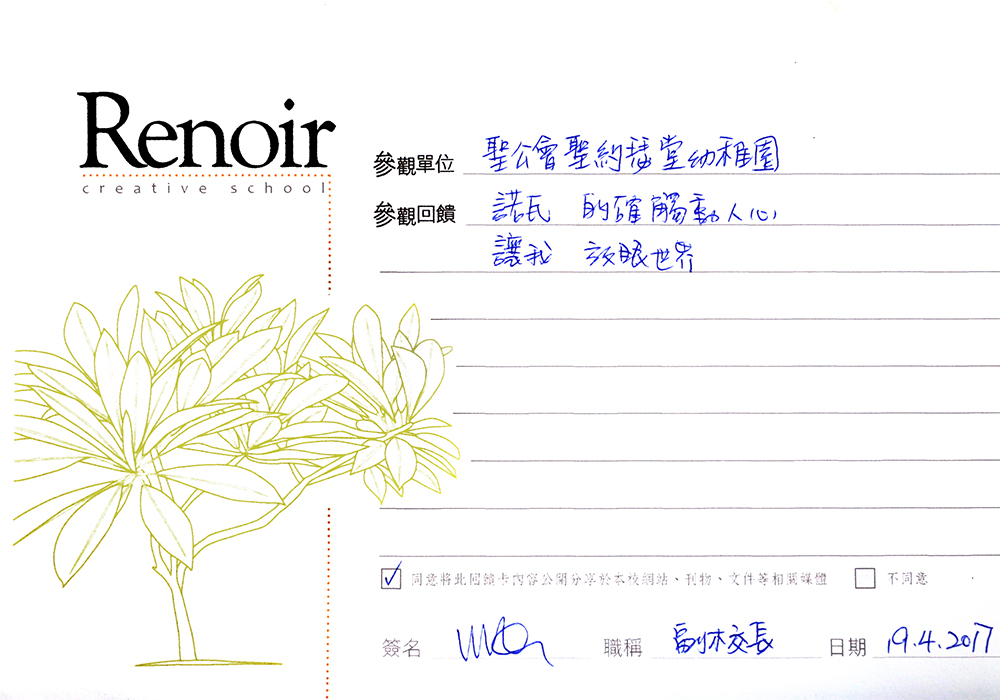 Renoir
creative school
參觀單位 聖公會聖約瑟堂幼稚園
參觀回饋 諾瓦 的確觸動人心
讓我 放眼世界
同意將此回饋卡內容公開分享於本校網站、刊物、文件等相關媒體 不同意
簽名 職稱 副校長 日期 19.4.2017